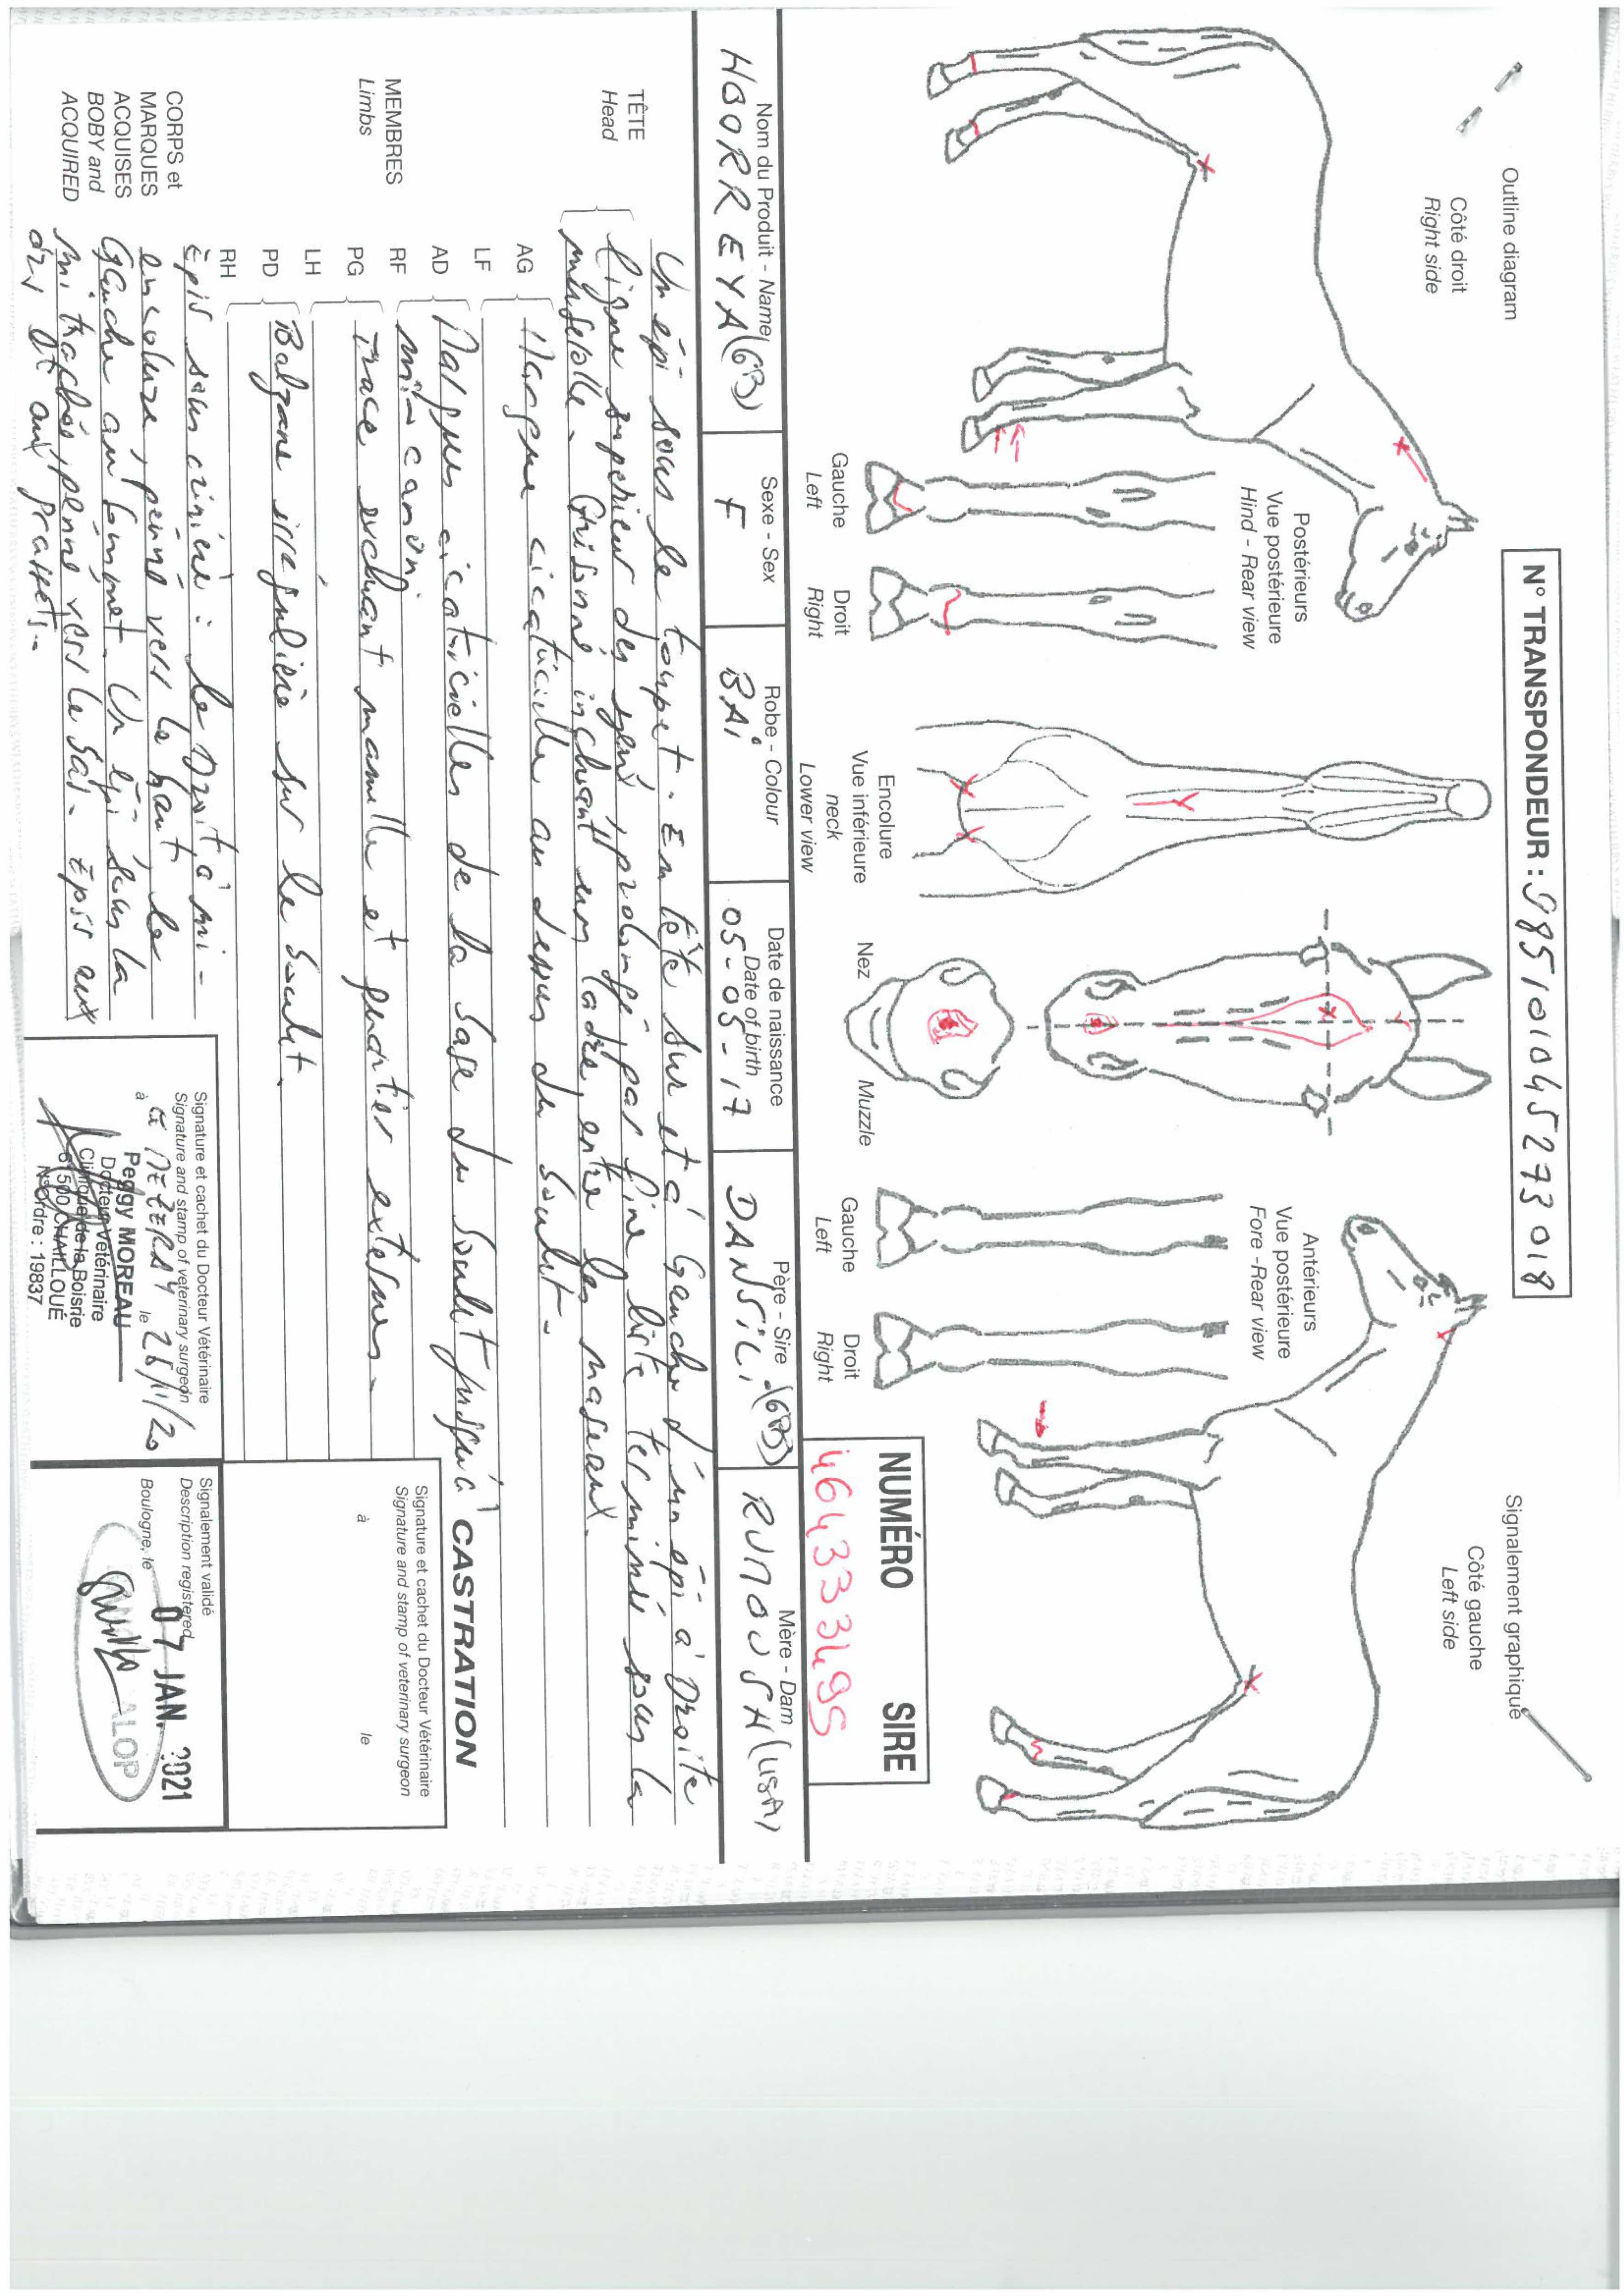 Outline diagram
N° TRANSPONDEUR : 985101045273018
Signalement graphique
Côté droit
Right side
Côté gauche
Left side
Postérieurs
Vue postérieure
Hind - Rear view
Antérieurs
Vue postérieure
Fore - Rear view
Gauche
Left
Droit
Right
Encolure
Vue inférieure
neck
Lower view
Nez
Muzzle
Gauche
Left
Droit
Right
NUMÉRO SIRE
Nom du Produit - Name
HBORREYA (GB)
Sexe - Sex
F
Robe - Colour
BAi
Date de naissance
Date of birth
05-05-17
Père - Sire
DANSiLi (GB)
Mère - Dam
RUMOUSH (USA)
TÊTE
Head
Un épi sous le toupet. En tête sur et à Gauche d'un épi à Droite
ligne supérieur des yeux, prolongé par fine liste terminée sous la
muserolle. Grisonné incluant un ladre, entre les naseaux.
MEMBRES
Limbs
AG
LF
Marque cicatricielle au dessus du boulet.
AD
RF
Marques cicatricielles de la base du boulet jusqu'à
mi-canon.
PG
LH
Trace incluant mamelle et quartier externes.
PD
RH
Balzane irrégulière sur le boulet.
CORPS et
MARQUES
ACQUISES
BOBY and
ACQUIRED
Epis sous crinière : le Droit, à mi-
encolure, penné vers le haut, le
Gauche au sommet. Un épi sous la
mi trachée, penné vers le bas. Epis aux
ars et aux grassets.
CASTRATION
Signature et cachet du Docteur Vétérinaire
Signature and stamp of veterinary surgeon
à le
Signature et cachet du Docteur Vétérinaire
Signature and stamp of veterinary surgeon
à le MEZERAY le 26/11/20
Peggy MOREAU
Docteur Vétérinaire
Clinique de la Boisrie
61500 CHAILLOUÉ
N° Ordre : 19837
Signalement validé
Description registered
Boulogne, le
07 JAN. 2021